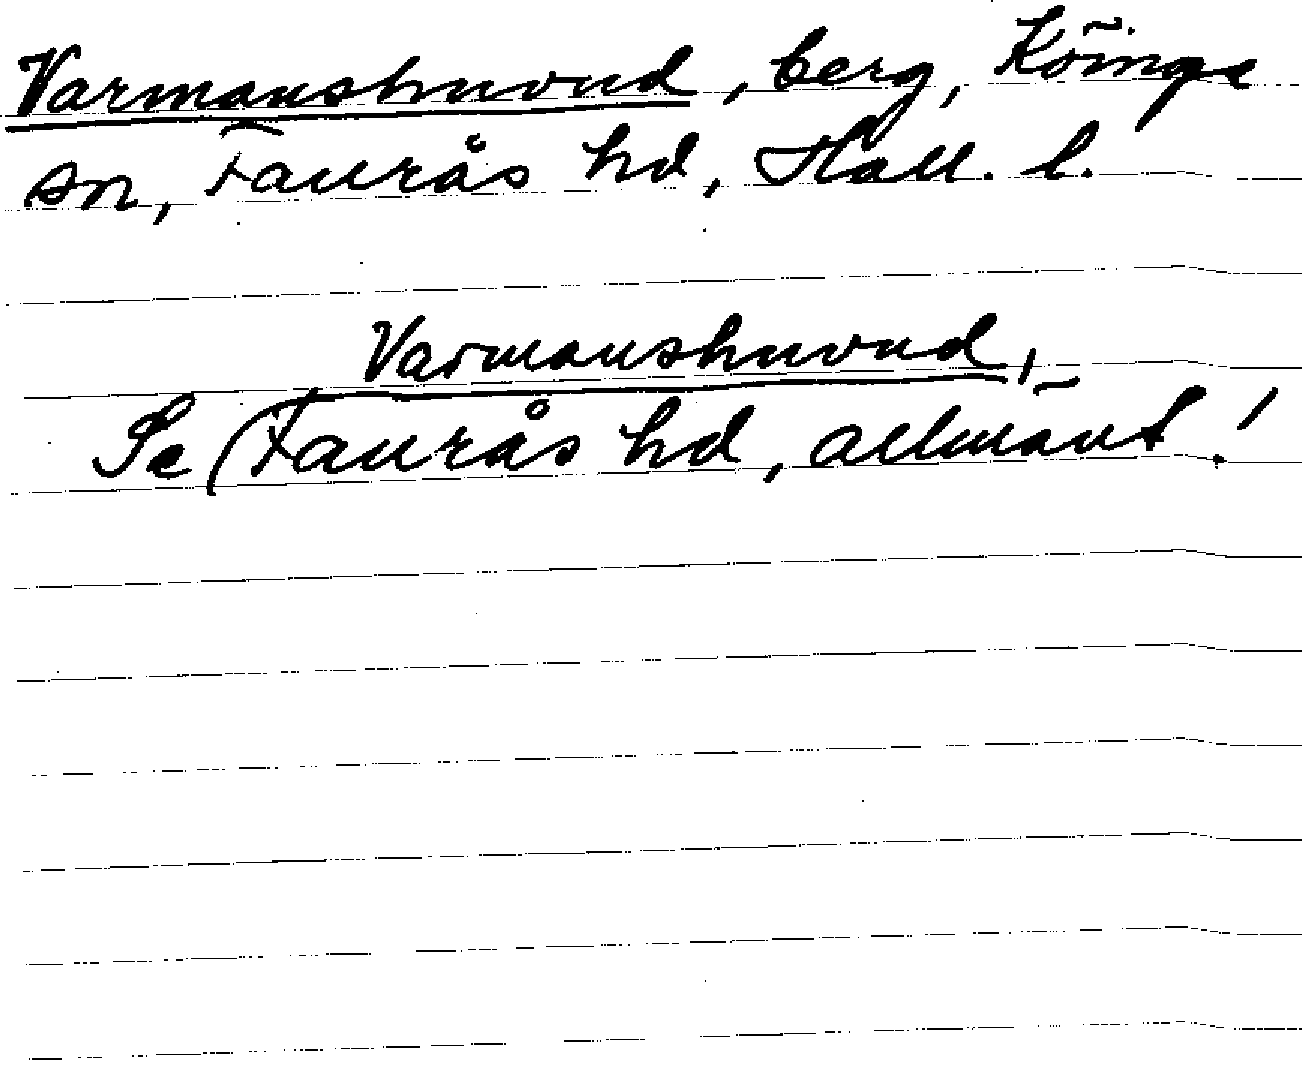 Varmanshuvud, berg, Köinge
sn, Faurås hd, Hall. l.
Varmanshuvud,
Se Faurås hd, allmänt!